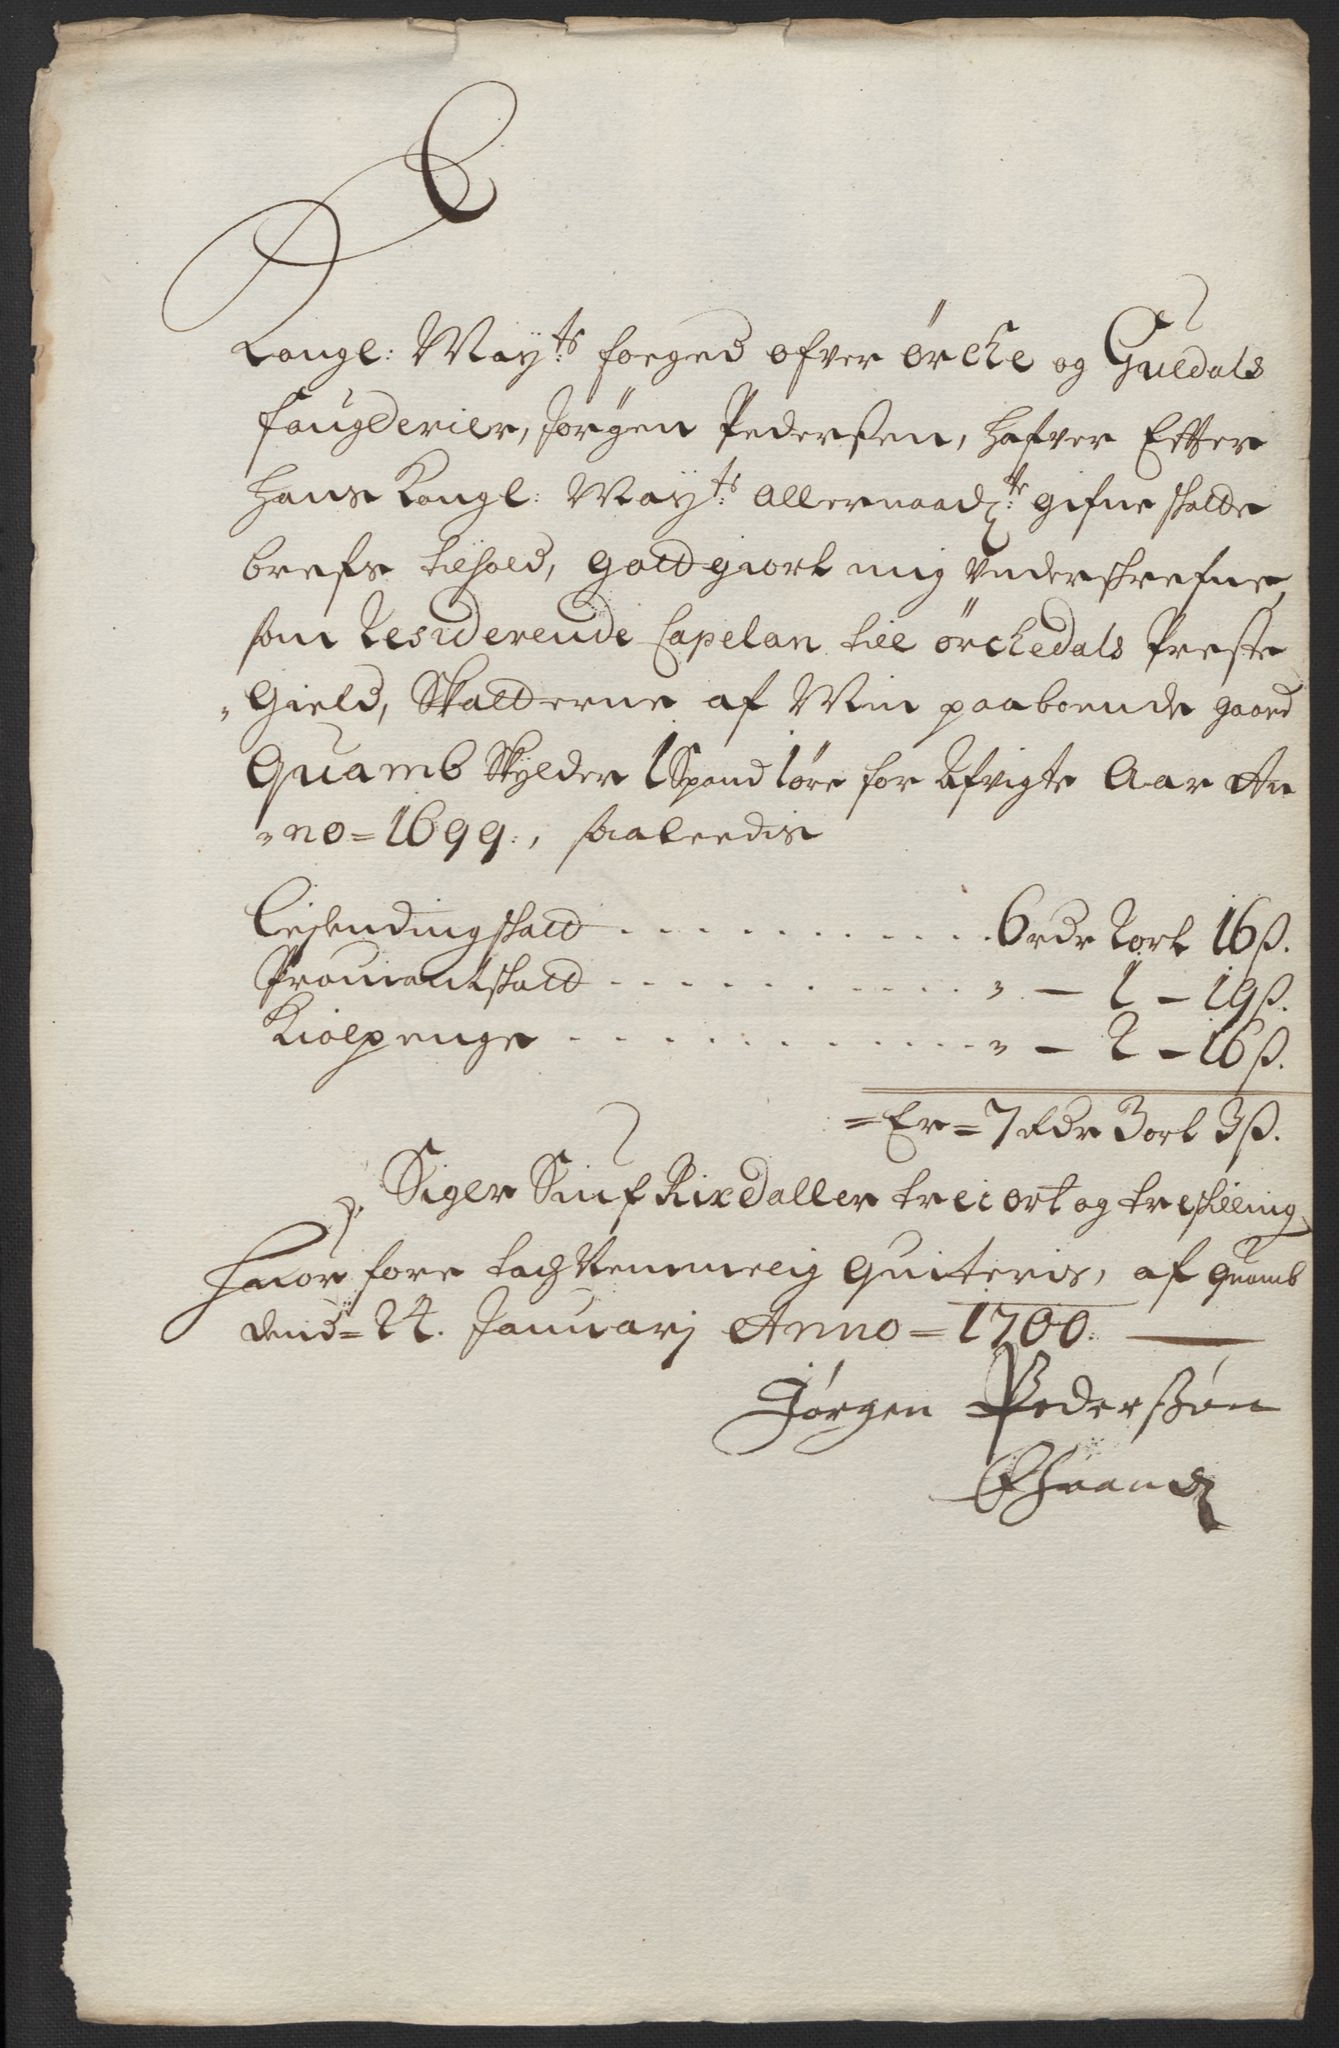 Kongl: May:ts foeged ofver örche og Guldals
fougderier, Jörgen Pederßen, hafver Efter
hans Kongl: May:ts Allernaadg:te gifne skatte
brefs tilhold, gotdgiort mig Underskrefne,
som Residerende Capelan till örchedals Preste
Gield, Skatterne af Min paaboende gaard
Quamb Skylder 1 Spand 1 öre for Afvigte Aar An
no = 1699:, saaleedis
Leylendingskatt . . . . . . . . . . . 6 rdr 2 ort 16 ß.
Prouiantskatt . . . . . . . . . . . " — 1 — 19 ß.
Kiolpenge . . . . . . . . . . . . " — 2 — 16 ß.
= Er = 7 Rdr 3 ort 3 ß.
Siger Siuf Rixdaller trei ort og tre skilling
huorfore tachNemmelig Quiteris, af Quamb
dend = 24. Januarj Anno = 1700.
Jörgen Pederßön